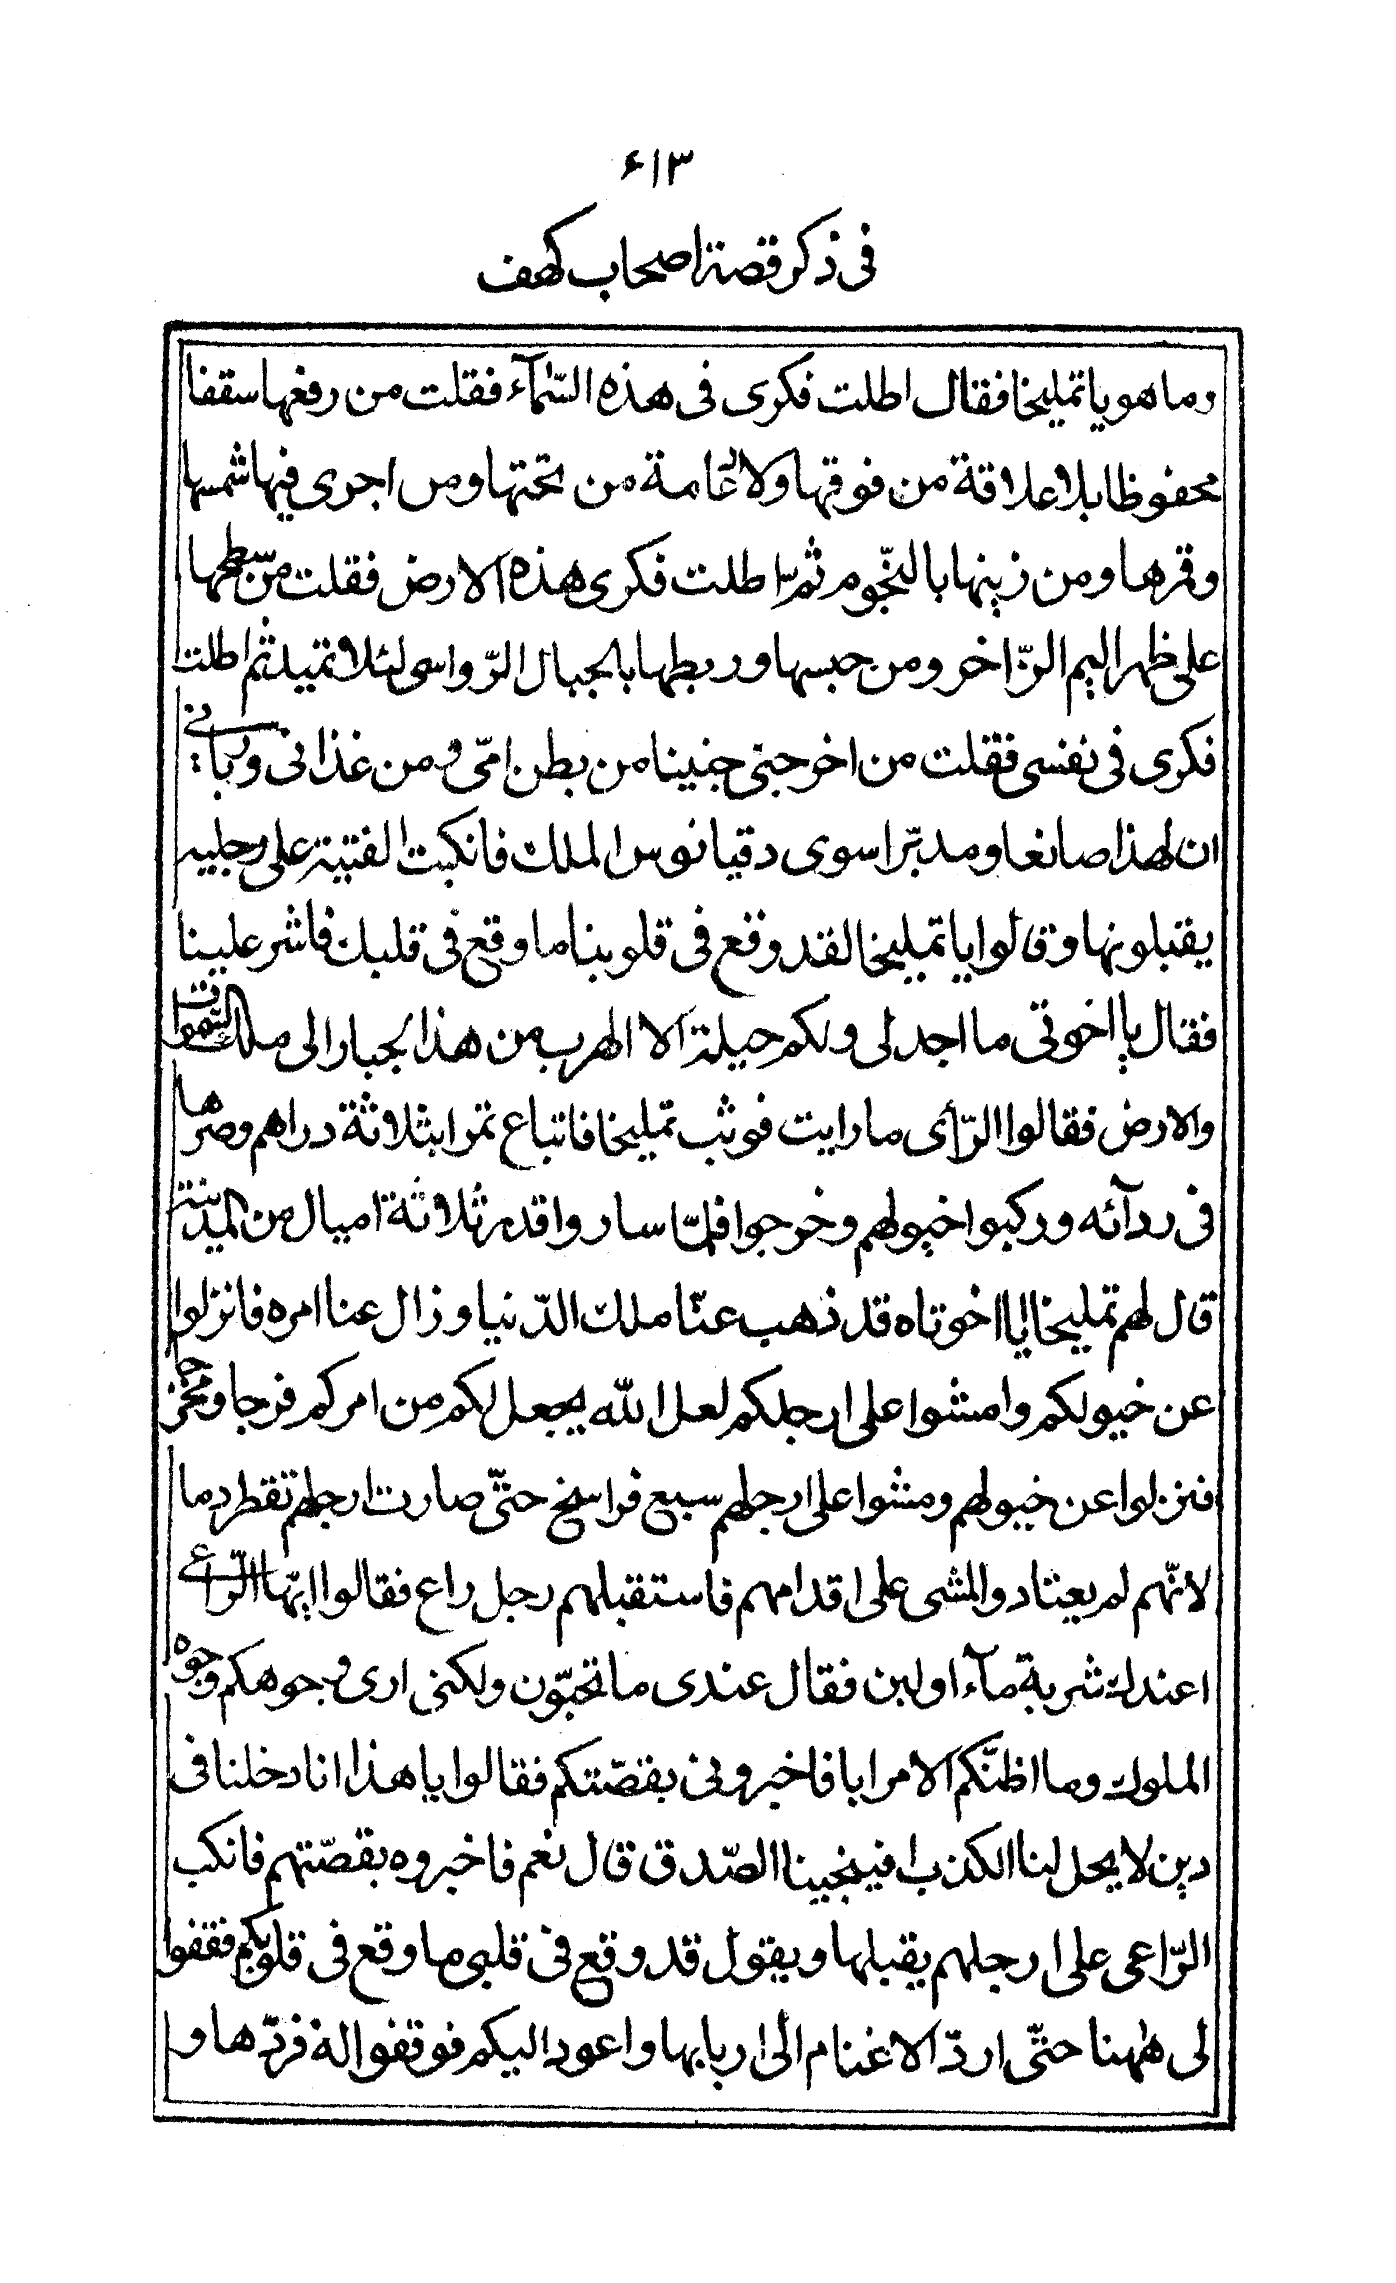 ۶۱۳
فى ذكر قصة اصحاب كهف
وما هو يا تمليخا فقال اطلت فكرى فى هذه السّمآء فقلت من رفعها سقفا
محفوظا بلا علاقة من فوقها ولا دعامة من تحتها ومن اجرى فيها شمسها
وقمرها ومن زينها بالنّجوم ثمّ اطلت فكرى هذه الارض فقلت من سطحها
على ظهر اليم الزّاخر ومن حبسها وربطها بالجبال الرّواسى لئلا تميد ثم اطلت
فكرى فى نفسى فقلت من اخرجنى جنينا من بطن امّى ومن غذانى وربانى
ان لهذا صانعا ومدبّرا سوى دقيانوس الملك فانكبت الفتية على رجليه
يقبلونها وقالوا يا تمليخا لقد وقع فى قلوبنا ما وقع فى قلبك فاشر علينا
فقال يا اخوتى ما اجد لى ولكم حيلة الا الهرب من هذا الجبار الى ملك السّموات
والارض فقالوا الرّأى ما رايت فوثب تمليخا فاتباع تمرا بثلاثة دراهم وصرها
فى ردآئه وركبوا خيولهم وخرجوا فلمّا ساروا قدر ثلاثة اميال من المدينة
قال لهم تمليخا يا اخوتاه قد ذهب عنّا ملك الدّنيا وزال عنا امره فانزلوا
عن خيولكم وامشوا على ارجلكم لعل اللّه يجعل لكم من امركم فرجا ومخرجا
فنزلوا عن خيولهم ومشوا على ارجلهم سبع فراسخ حتّى صارت ارجلهم تقطر دما
لانّهم لم يعتادوا المشى على اقدامهم فاستقبلهم رجل راع فقالوا ايّها الرّاعى
اعندك شربة مآء او لبن فقال عندى ما تحبّون ولكنى ارى وجوهكم وجوه
الملوك وما اظنّكم الا مرابا فاخبرونى بقصّتكم فقالوا يا هذا انا دخلنا فى
دين لا يحل لنا الكذب افينجينا الصّدق قال نعم فاخبروه بقصّتهم فانكب
الرّاعى على ارجلهم يقبلها ويقول قد وقع فى قلبى ما وقع فى قلوبكم فقفوا
لى ههنا حتّى اردّ الاغنام الى اربابها واعود اليكم فوقفوا له فردّها و